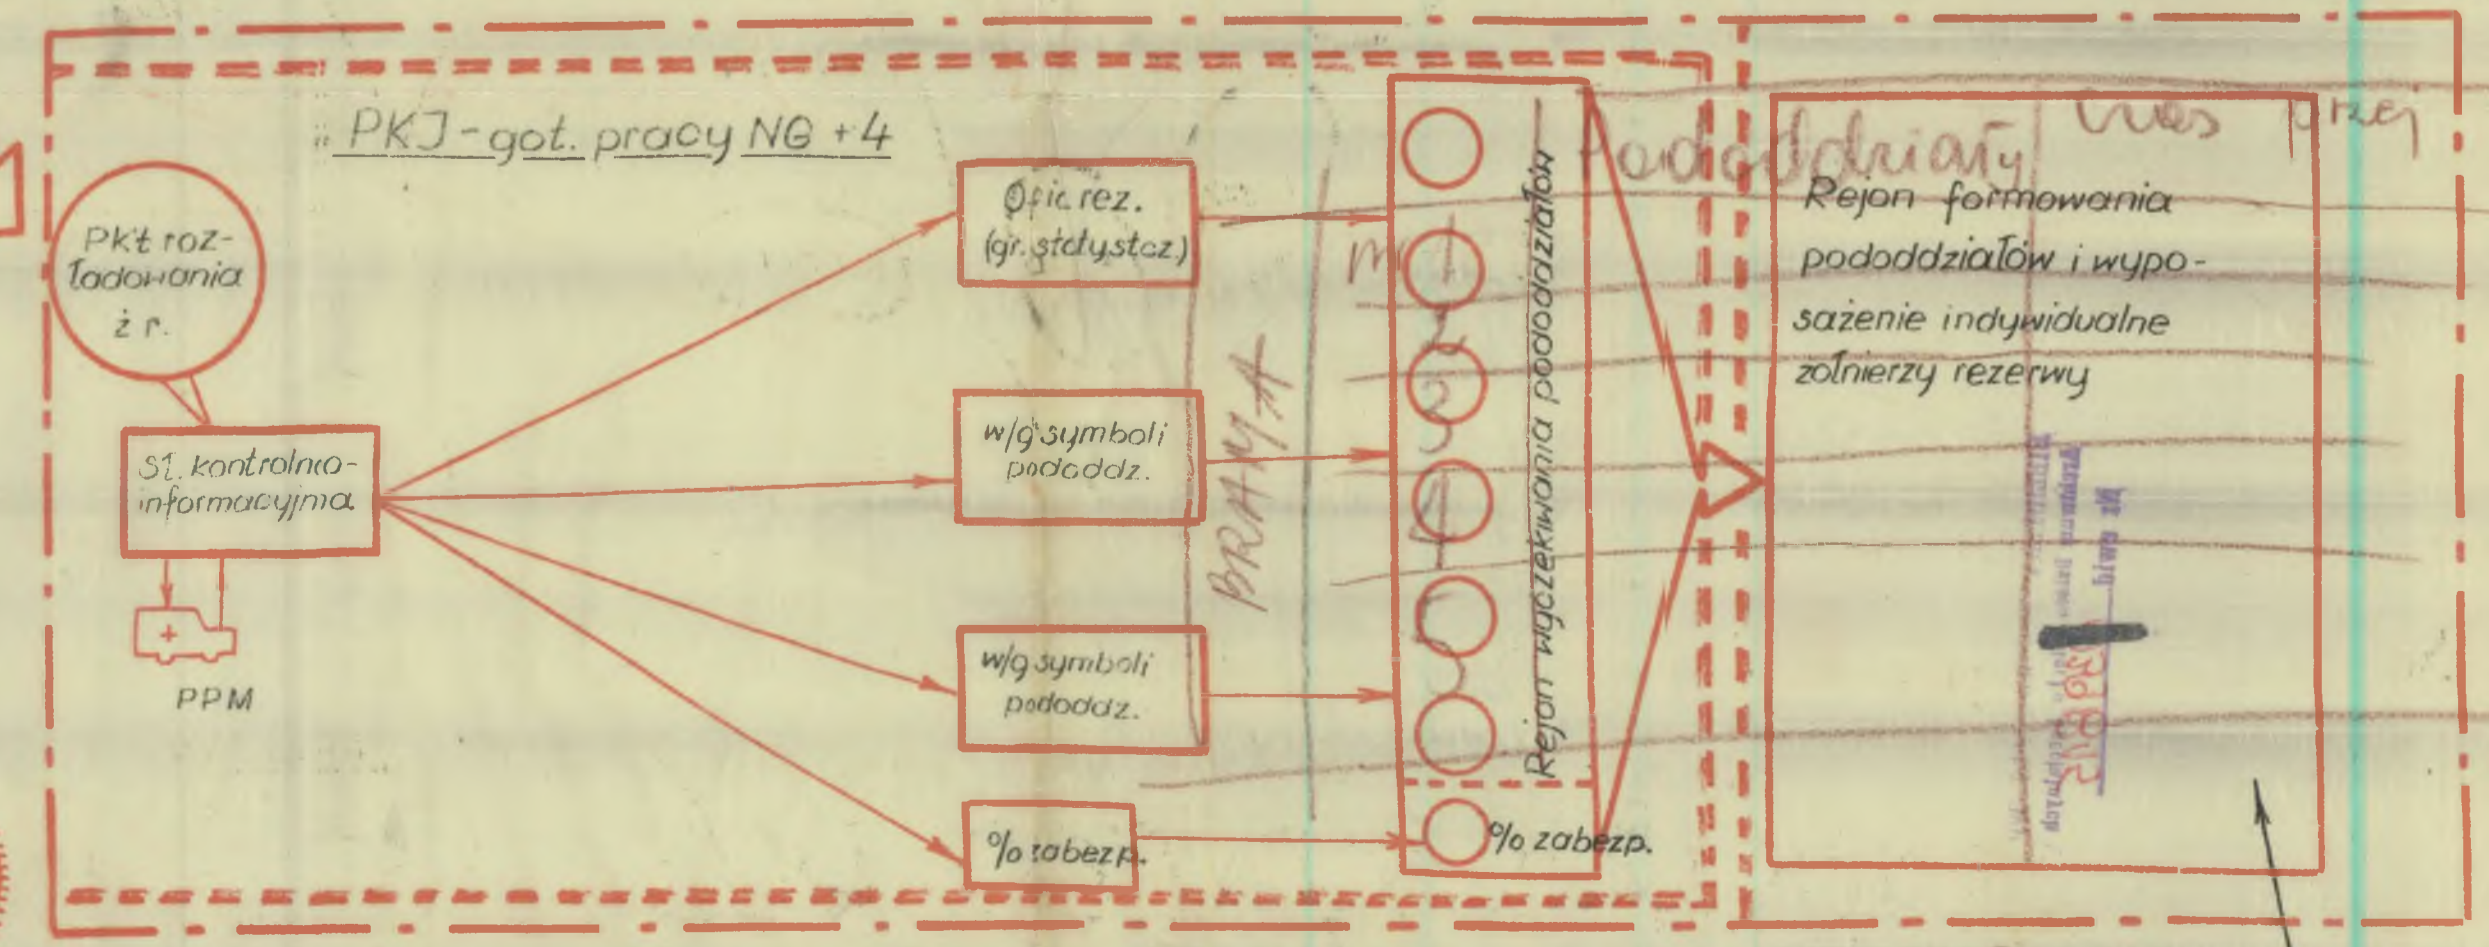 PKJ - got. pracy NG + 4
Pkt roz-
ładowania
ż r.
St. kontrolno-
informacyjna
PPM
Ofic rez.
(gr. statystcz.)
w/g symboli
pododdz.
w/g symboli
pododdz.
% zabezp.
BRAMA
Rejon wyczekiwania pododdziałów
% zabezp.
Pododdziały
Rejon formowania
pododdziałów i wypo-
sażenie indywidualne
żołnierzy rezerwy